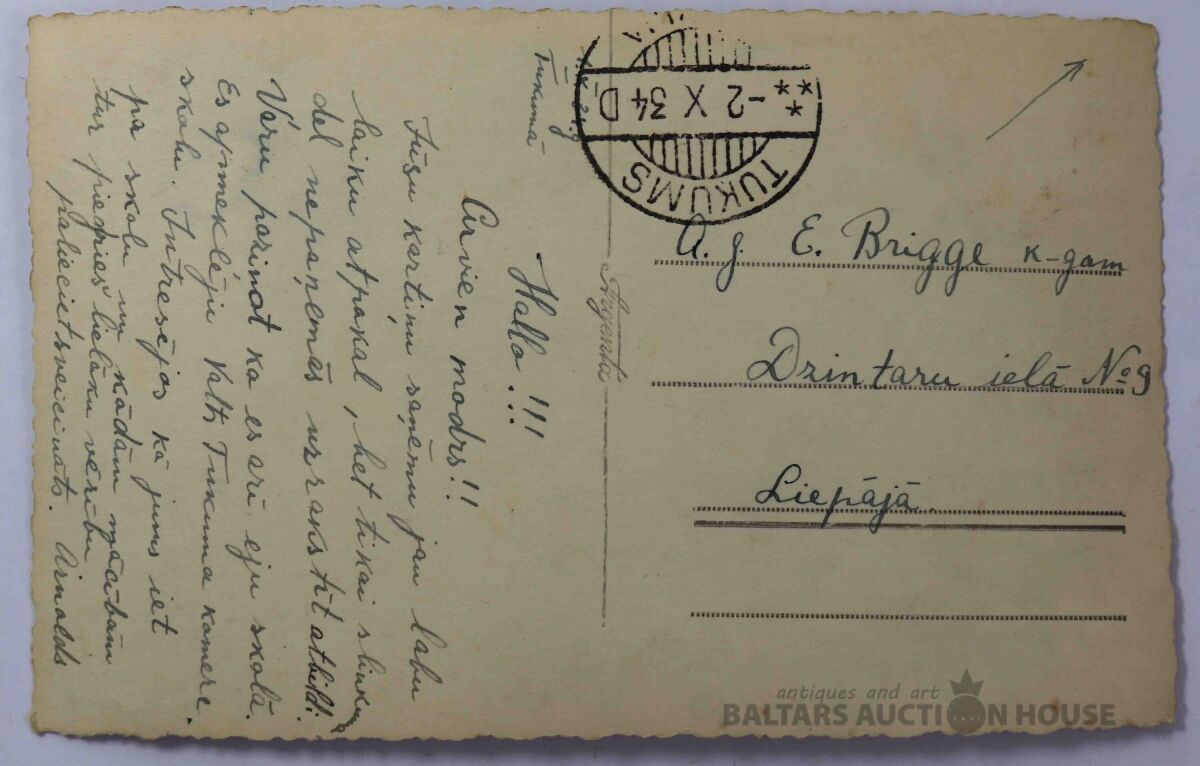 Tukumā
Hallo!!!
Arvien modrs!!
Jūsu kartiņu saņēmu jau labu
laiku atpakaļ, bet tikai slinkuma
dēļ nepaņēmās uzrakstīt atbildi.
Varu paziņot ka es arī eju skolā.
Es apmeklēju Valts Tukuma komerc.
skolu. Intresējos kā jums iet
pa skolu un kādām mācībām
tur piegriež lielāku vērību
paliec sveicināts. Arnolds
TUKUMS
-2 X 34 D
A. g. E. Brigge k-gam
Dzintaru ielā No 9
Liepājā.
antiques and art
BALTARS AUCTION HOUSE